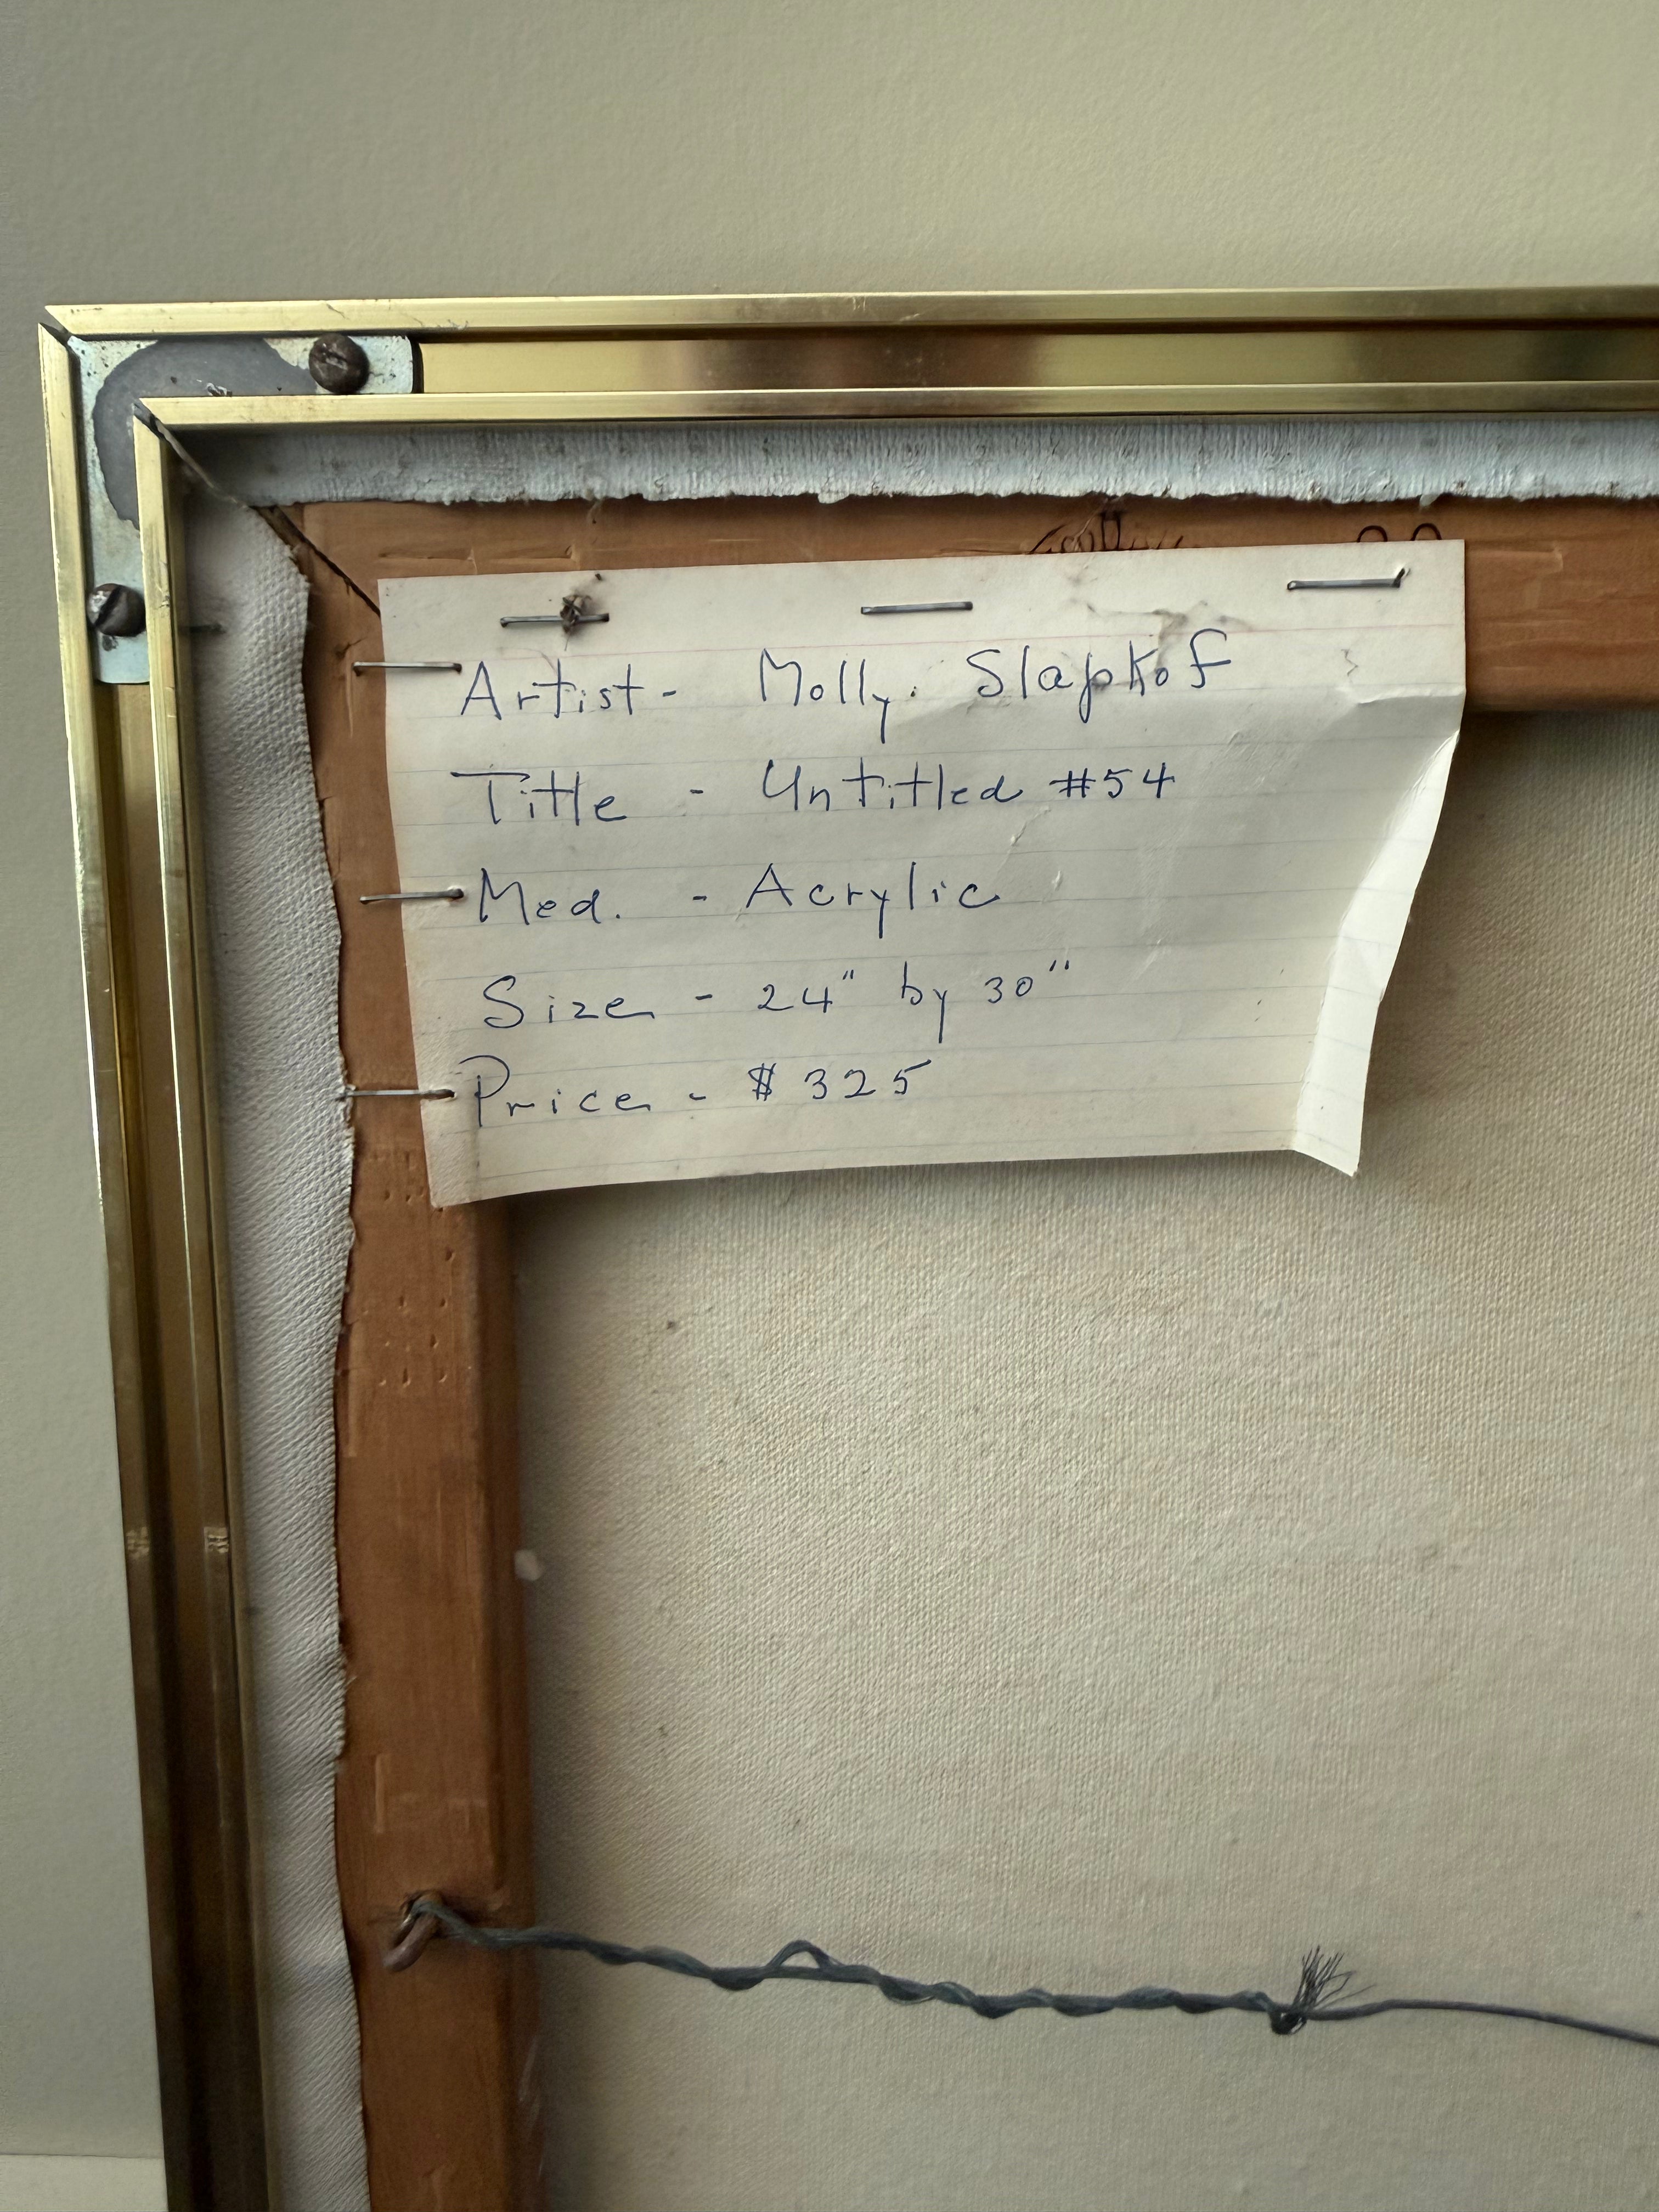 Artist - Molly. Slapkof
Title - Untitled #54
Med. - Acrylic
Size - 24" by 30"
Price - $325